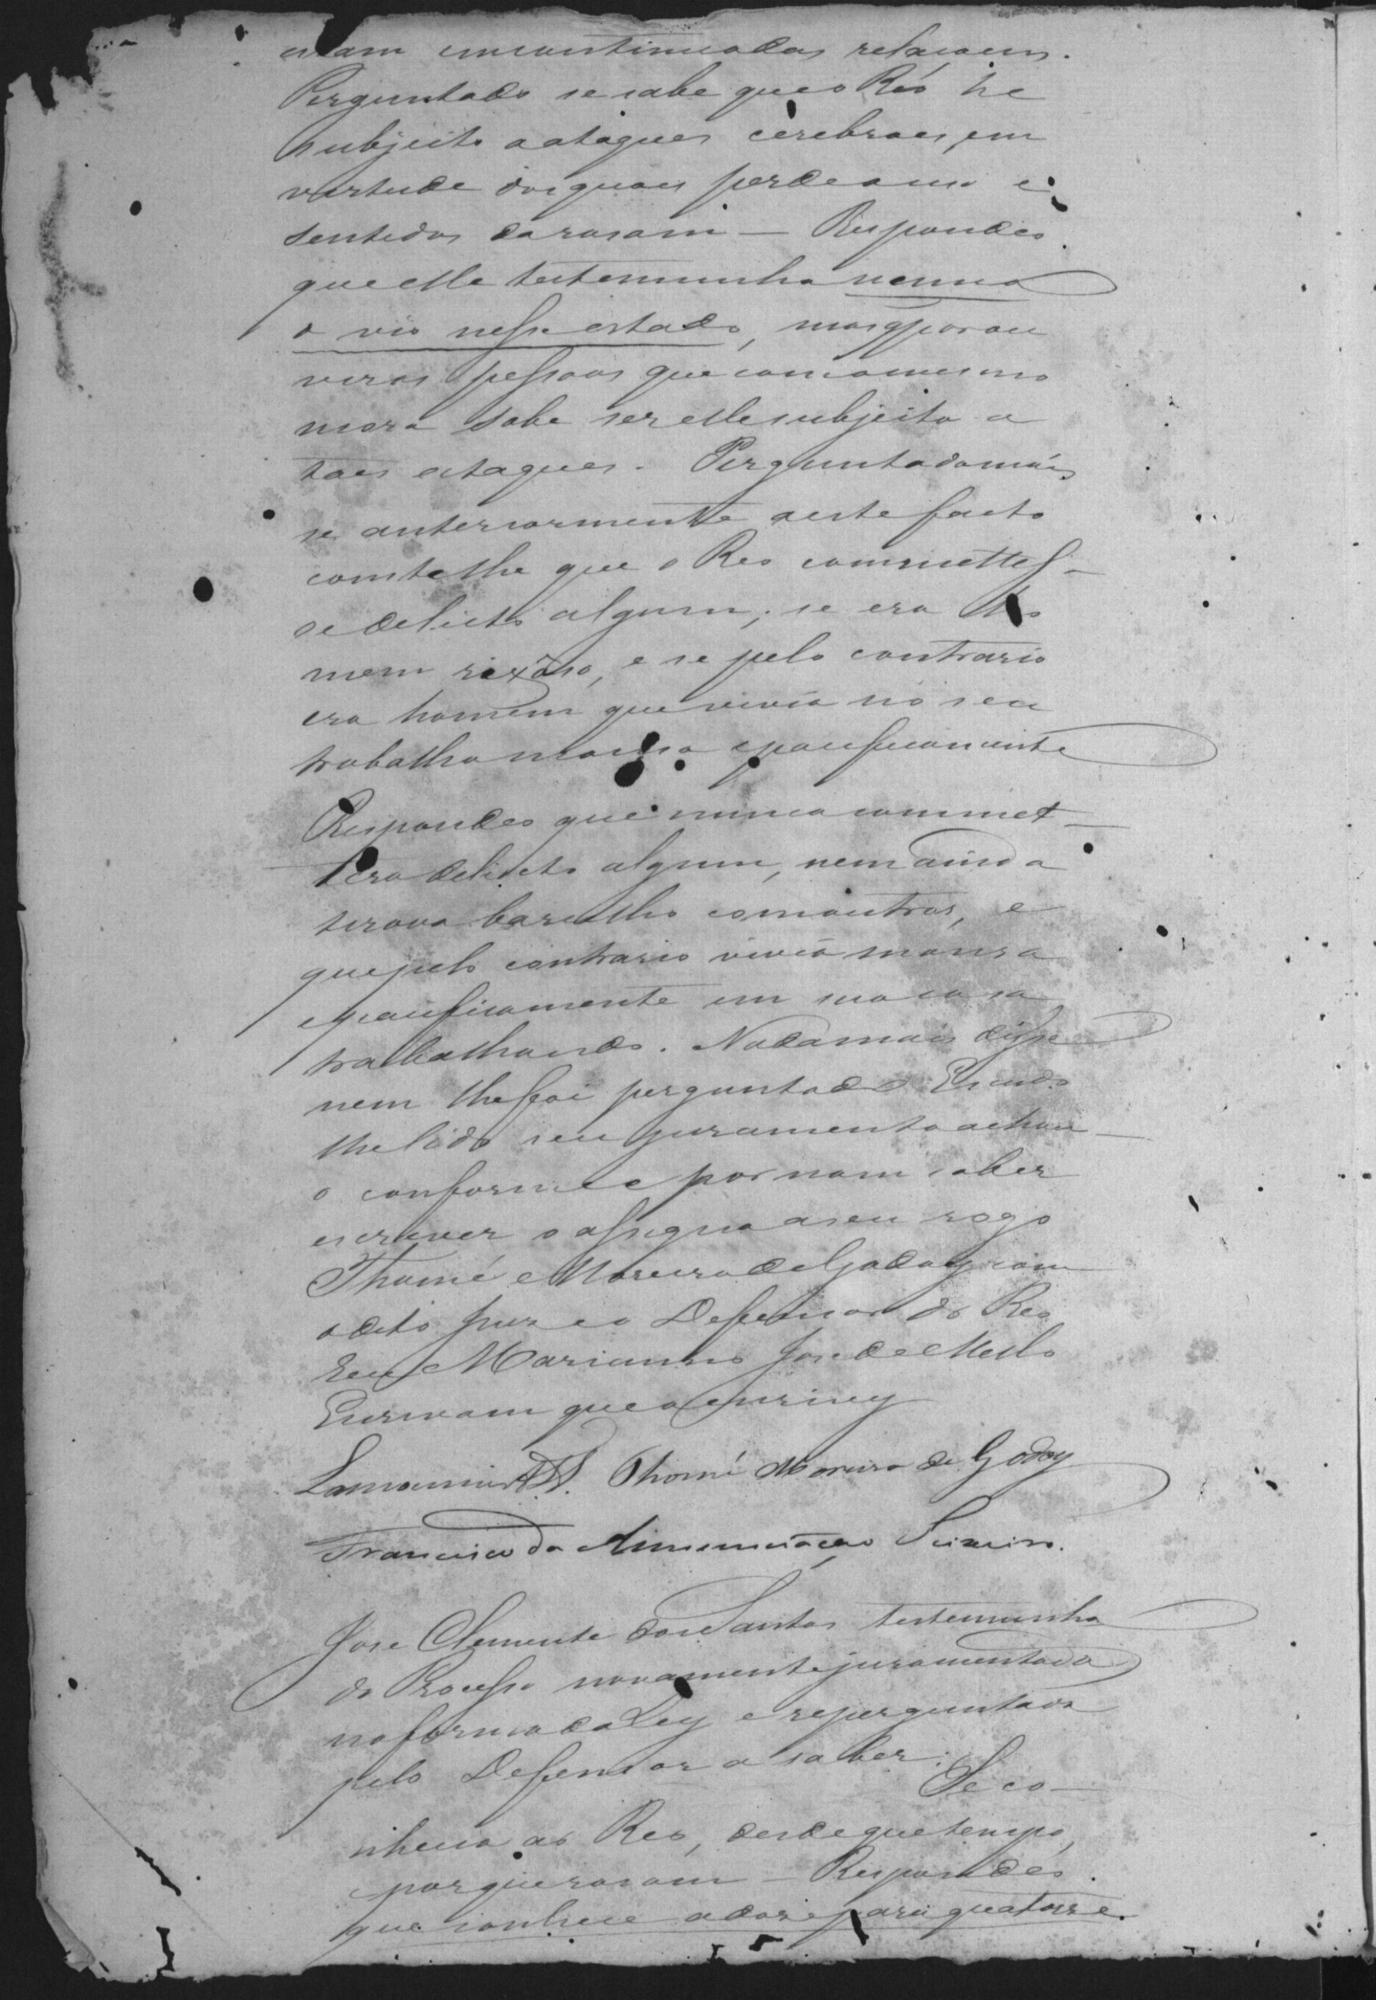 estam emcontinuadas relaçoens.
Perguntado se sabe que o Réo he
subjeito a ataques cerebraes, em
vertude dos quaes perdeo
sentidos da rasam — Respondeo
que elle testemunha nunca
o vio nesse estado, mas q por ou
veras pessoas que com o mesmo
mora sabe ser elle subjeito a
taes ataques. Perguntado mais
se anteriormente a este facto
consta lhe que o Reo commettes-
se delicto algum, se era ho
mem rixôso, e se pelo contrario
era homem que vivia no seu
trabalho mansa e pacificamente
Respondeo que nunca commet-
tera delicto algum, nem ainda
terava barulho com outros, e
que pelo contrario vivia mansa
e pacificamente em sua casa
trabalhando. Nada mais disse
nem lhe foi perguntado. E sendo
lhe lido seu juramento achou
o conforme e por nam saber
escrever o assigna a seu rogo
Thomé Moreira de Godoy com
o dito Juiz e o Defensor do Reo
Eu Marianno José de Mello
Escrivam que o escrivy
Thomé Moreira de Godoy
Francisco da Annunciação
José Clemente dos Santos testemunha
do Processo novamente juramentada
na forma da Ley e reperguntada
pelo Defensor a saber: Se co-
nhecia ao Reo, desde que tempo,
por que rasam — Respondeo
que conhece a dose para quatorse